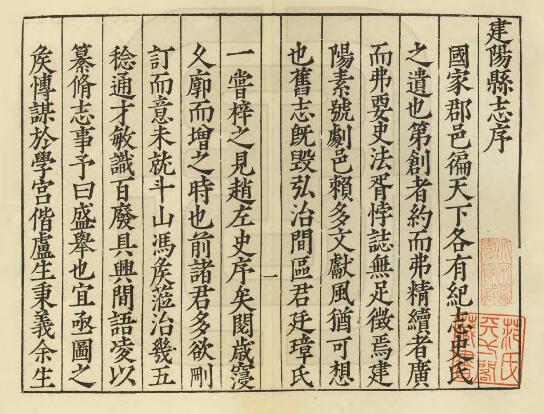 建陽縣志序
國家郡邑徧天下各有紀志史氏
之遺也第創者約而弗精續者廣
而弗要史法胥悖誌無足徵焉建
陽素號劇邑賴多文獻風猶可想
也舊志旣毀弘治間區君廷璋氏
一嘗梓之見趙左史序矣閱歲寖
久廓而增之時也前諸君多欲刪
訂而意未就斗山馮矦蒞治幾五
稔通才敏識百廢具興間語凌以
纂脩志事予曰盛舉也宜亟圖之
矦慱謀於學宮偕盧生秉義余生
一
范氏天一閣藏書